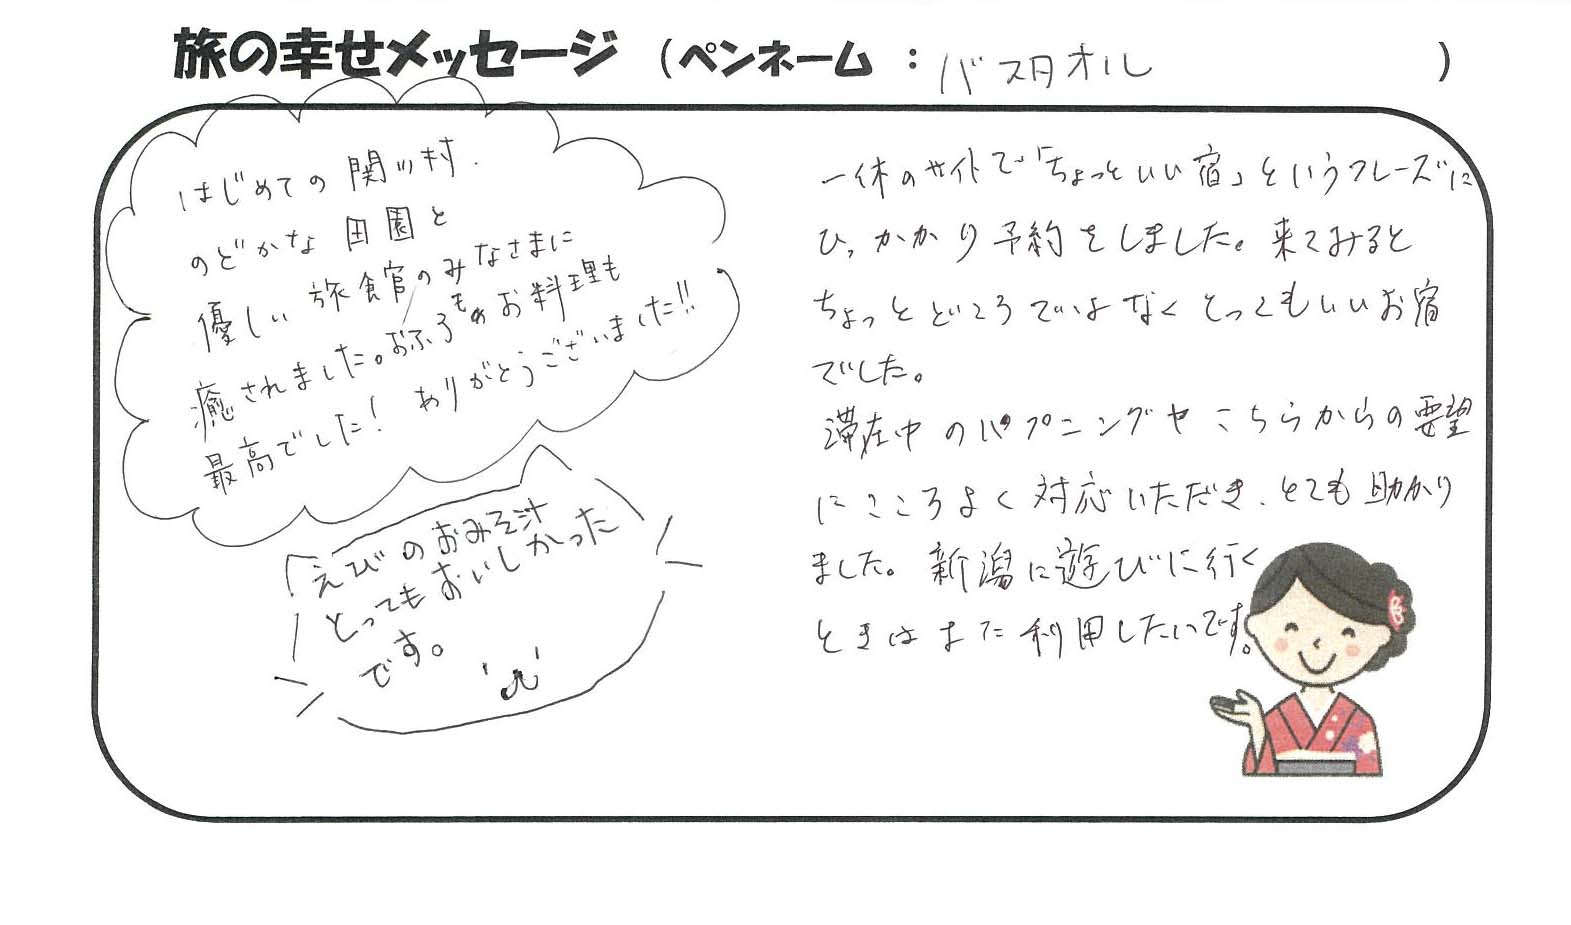 旅の幸せメッセージ （ペンネーム ： バスタオル ）
はじめての 関川村.
のどかな 田園と
優しい 旅館のみなさまに
癒されました。おふろもお料理も
最高でした! ありがとうございました!!
えびのおみそ汁
とってもおいしかった
です。
一休のサイトで「ちょっといい宿」というフレーズに
ひっかかり予約をしました。来てみると
ちょっとどころではなくとってもいいお宿
でした。
滞在中のハプニングやこちらからの要望
にこころよく対応いただき、とても助かり
ました。新潟に遊びに行く
ときはまた利用したいです。